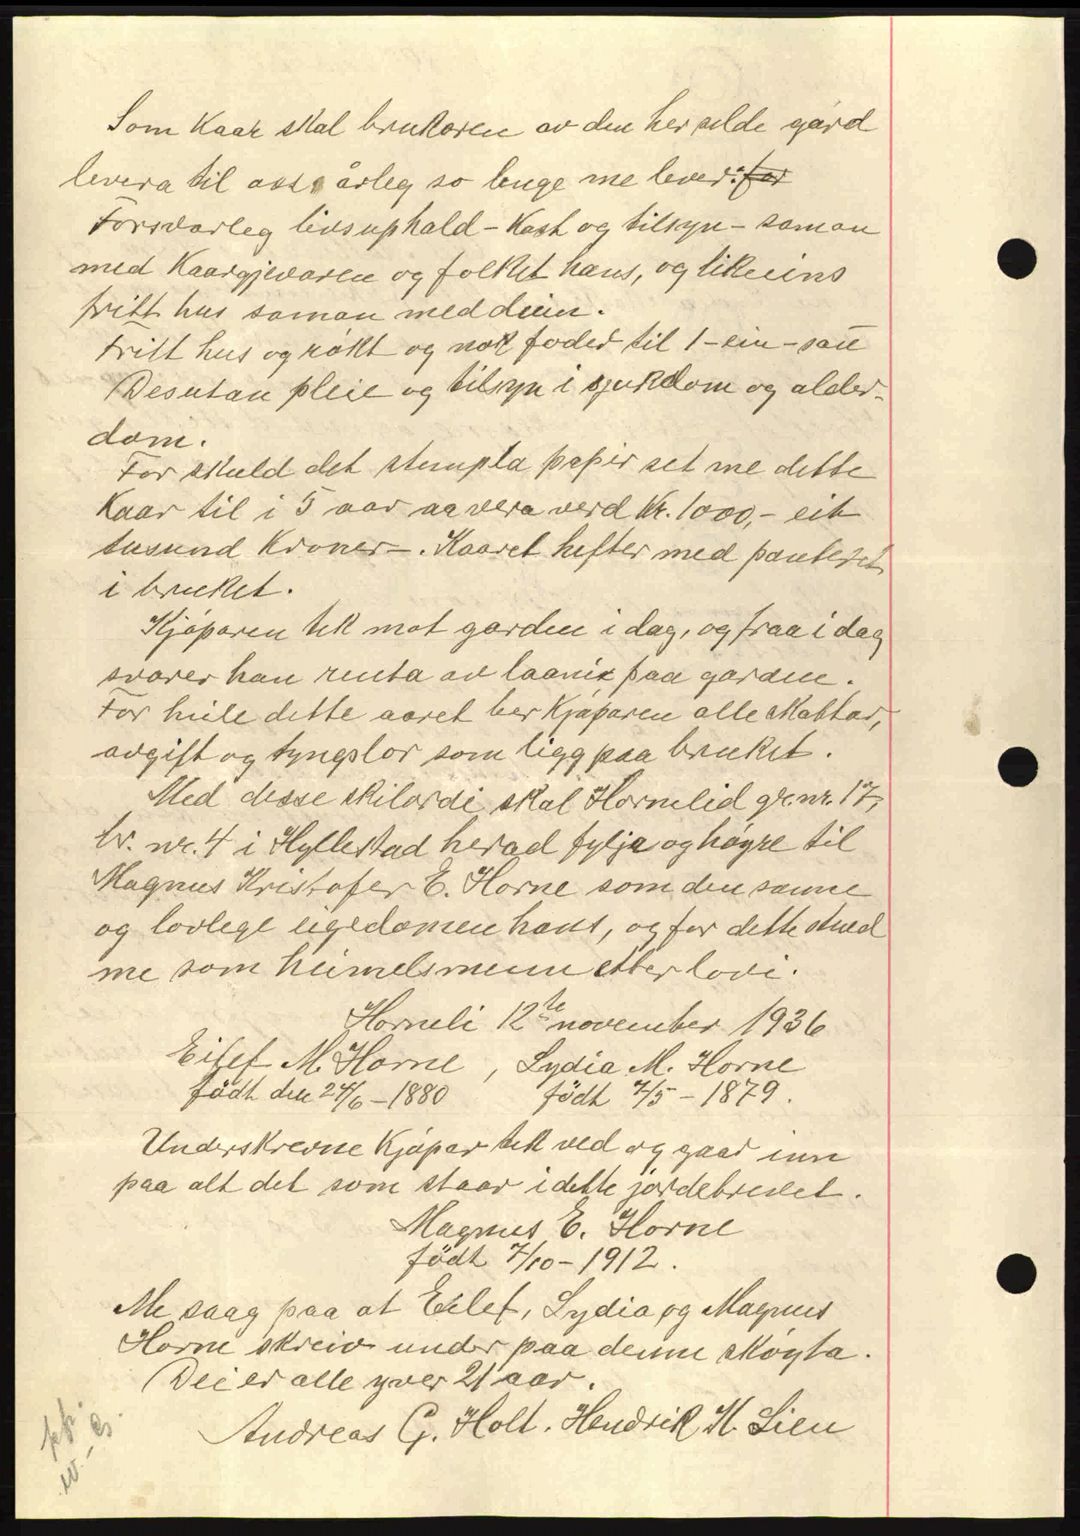 Som Kaar skal brukaren av den her selde gard
levera til oss årleg so lenge me lever: for
Forsvarleg livsuphald – Kost og tilsyn – saman
med Kaargjevaren og folket hans, og likeeins
fritt hus saman med deim.
Fritt hus og røkt og nok foder til 1 – ein – sau
Desutan pleie og tilsyn i sjukdom og alder-
dom.
For skuld det stempla papir set me dette
Kaar til i 5 aar aa vera verd Kr. 1000,- eit
tusund Kroner –. Kaaret hefter med panterett
i bruket.
Kjøparen tek mot garden i dag, og fraa i dag
svarer han renta av laanix paa garden.
For heile dette aaret ber Kjøparen alle skattar,
avgift og tyngslor som ligg paa bruket.
Med desse skilordi skal Hornelid gr. nr. 17,
br. nr. 4 i Hyllestad herad fylja og høyre til
Magnus Kristofer E. Horne som den sanne
og lovlege eigedomen hans, og for dette stend
me som heimelsmenn etter lovi.
Horneli 12te november 1936
Eilef M. Horne, Lydia M. Horne
født den 24/6 – 1880 født 7/5 – 1879.
Underskrevne Kjøpar tek ved og gaar inn
paa alt det som staar i dette jordebrevet.
Magnus E. Horne
født 7/10 – 1912.
Me saag paa at Eilef, Lydia og Magnus
Horne skreiv under paa denne skøyta.
Dei er alle yver 21 aar.
Andreas G. Holt. Hendrik K. Lien